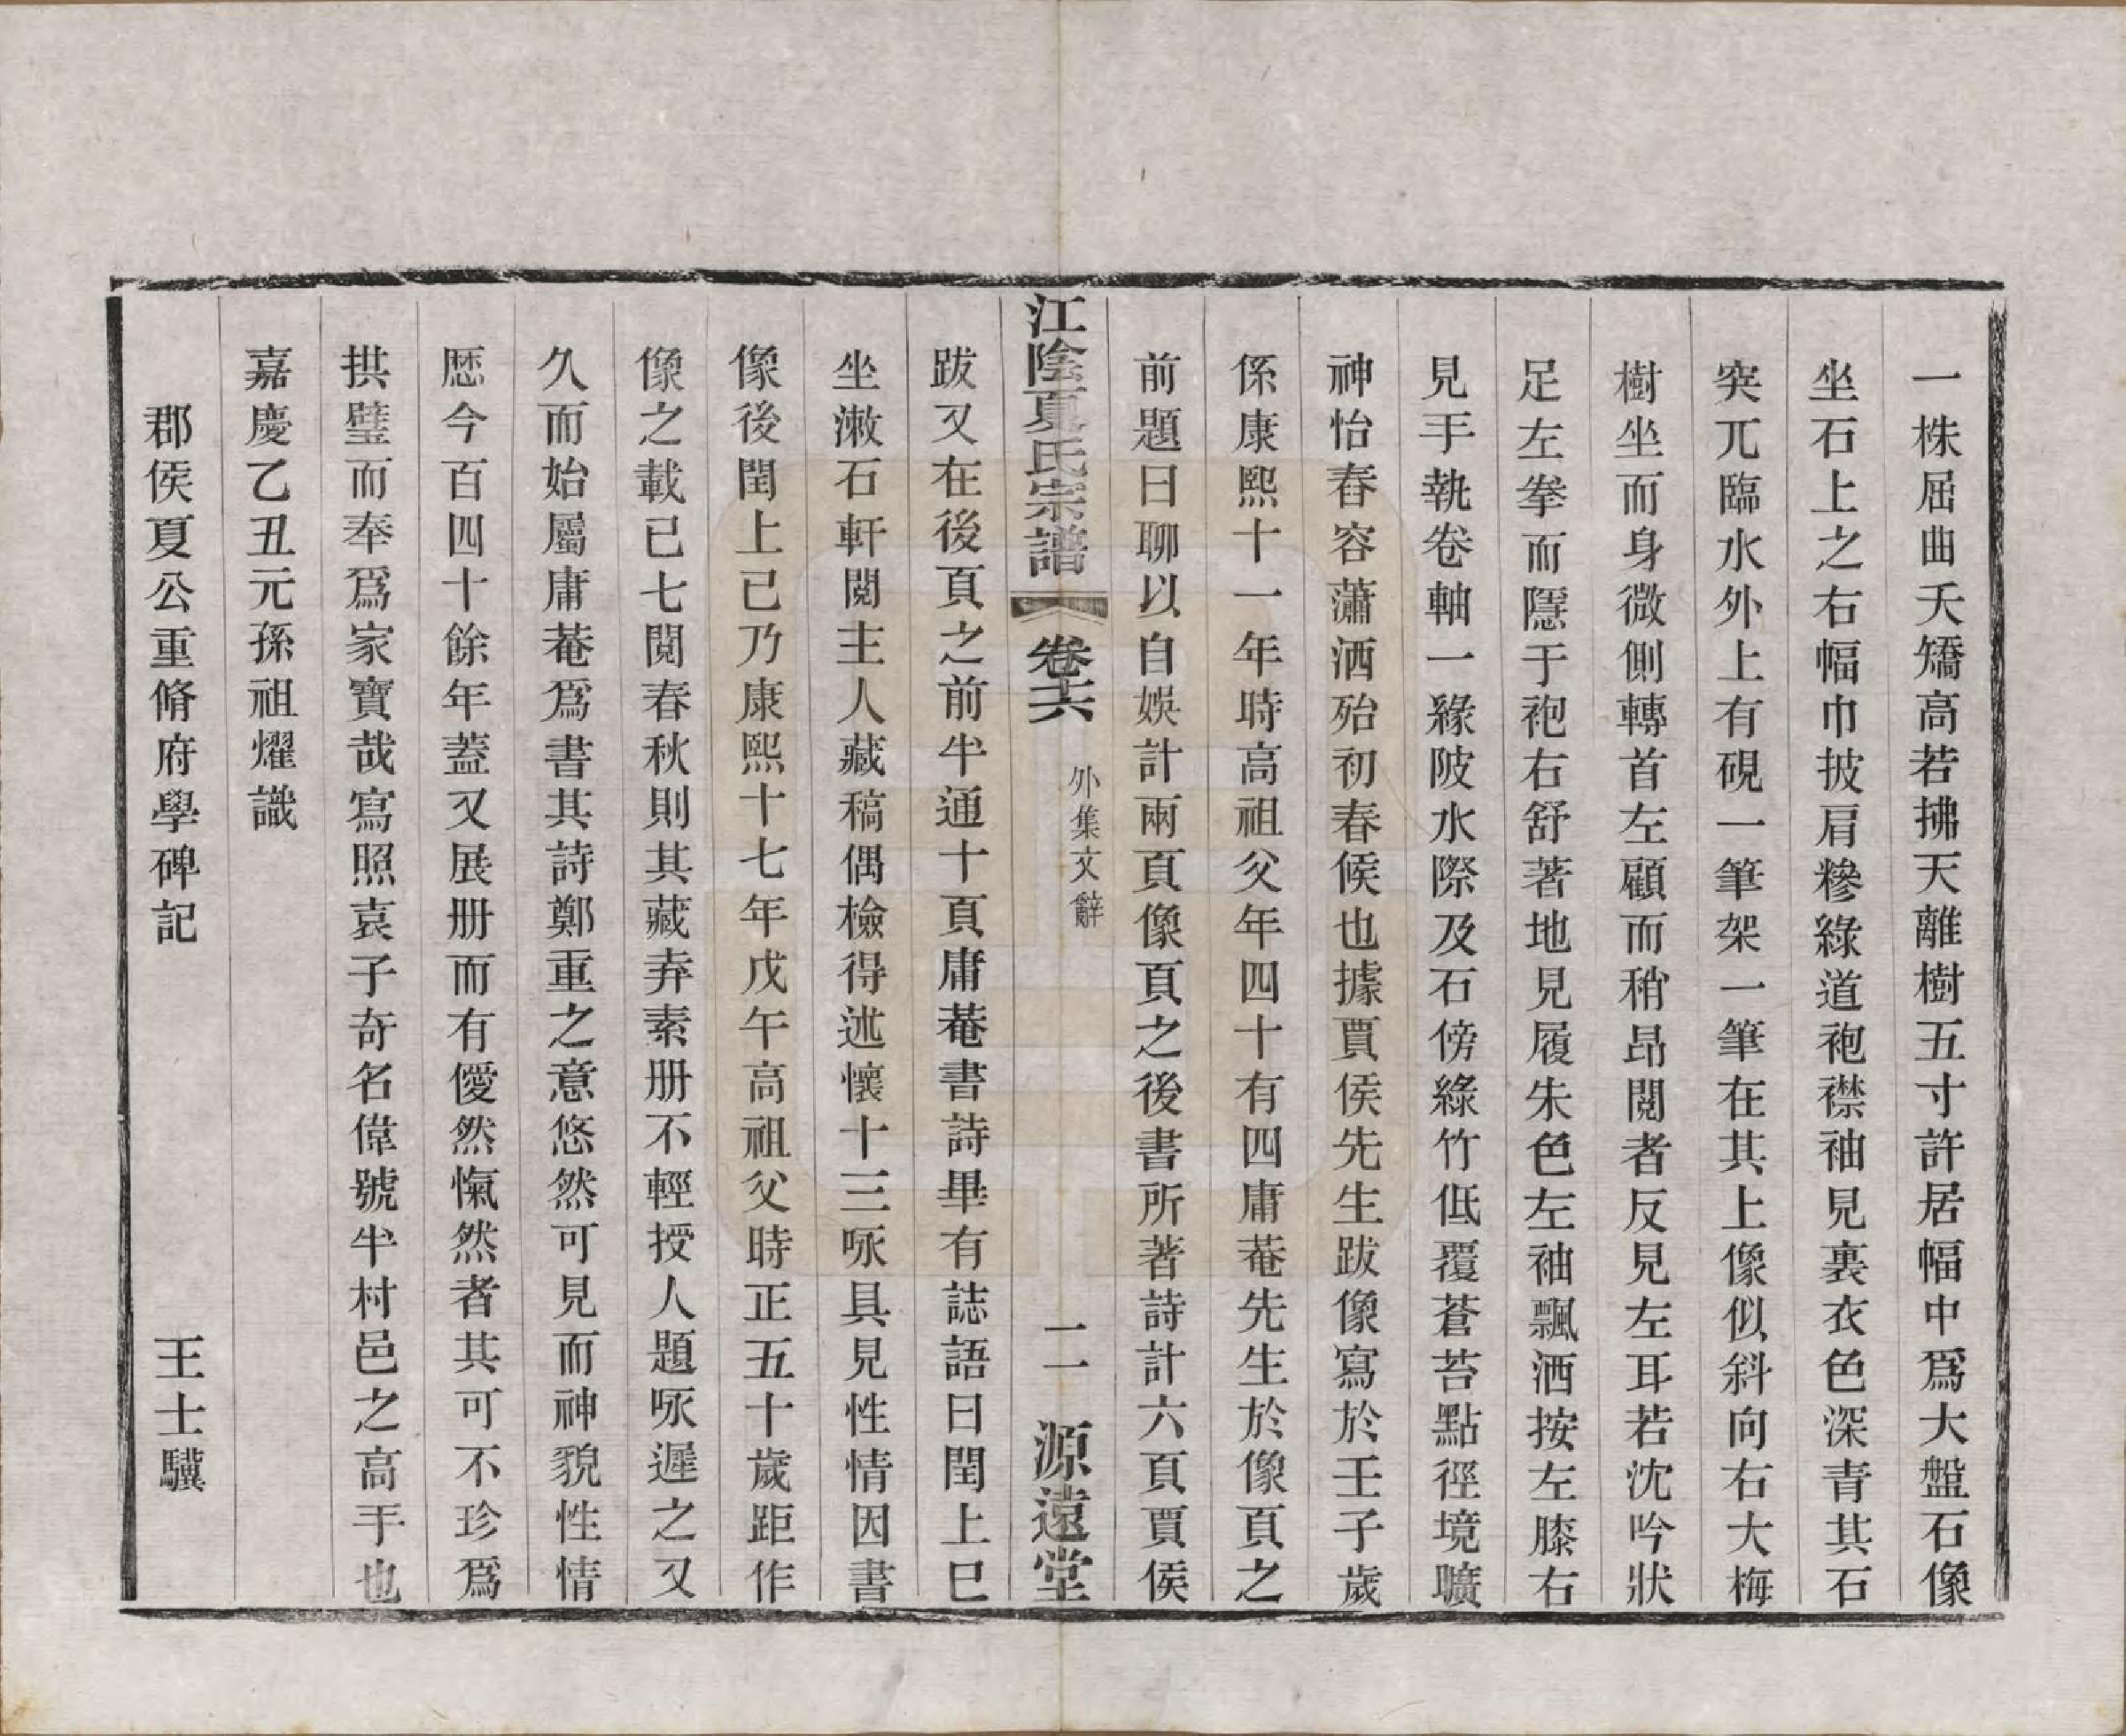 一株屈曲夭矯高若拂天離樹五寸許居幅中爲大盤石像
坐石上之右幅巾披肩糝綠道袍襟袖見裏衣色深青其石
突兀臨水外上有硯一筆架一筆在其上像似斜向右大梅
樹坐而身微側轉首左顧而稍昂閱者反見左耳若沈吟狀
足左拳而隱于袍右舒著地見履朱色左袖飄洒按左膝右
見手執卷軸一綠陂水際及石傍綠竹低覆蒼苔點徑境曠
神怡春容瀟洒殆初春候也據賈侯先生跋像寫於壬子歲
係康熙十一年時高祖父年四十有四庸菴先生於像頁之
前題曰聊以自娛計兩頁像頁之後書所著詩計六頁賈侯
江陰夏氏宗譜 卷十六 外集文辭 二 源遠堂
跋又在後頁之前半通十頁庸菴書詩畢有誌語曰閏上巳
坐漱石軒閱主人藏稿偶檢得述懷十三咏具見性情因書
像後閏上巳乃康熙十七年戊午高祖父時正五十歲距作
像之載已七閱春秋則其藏弆素册不輕授人題咏遲之又
久而始屬庸菴爲書其詩鄭重之意悠然可見而神貌性情
歷今百四十餘年蓋又展册而有僾然愾然者其可不珍爲
拱璧而奉爲家寶哉寫照袁子奇名偉號半村邑之高手也
嘉慶乙丑元孫祖燿識
郡侯夏公重脩府學碑記 王士驥